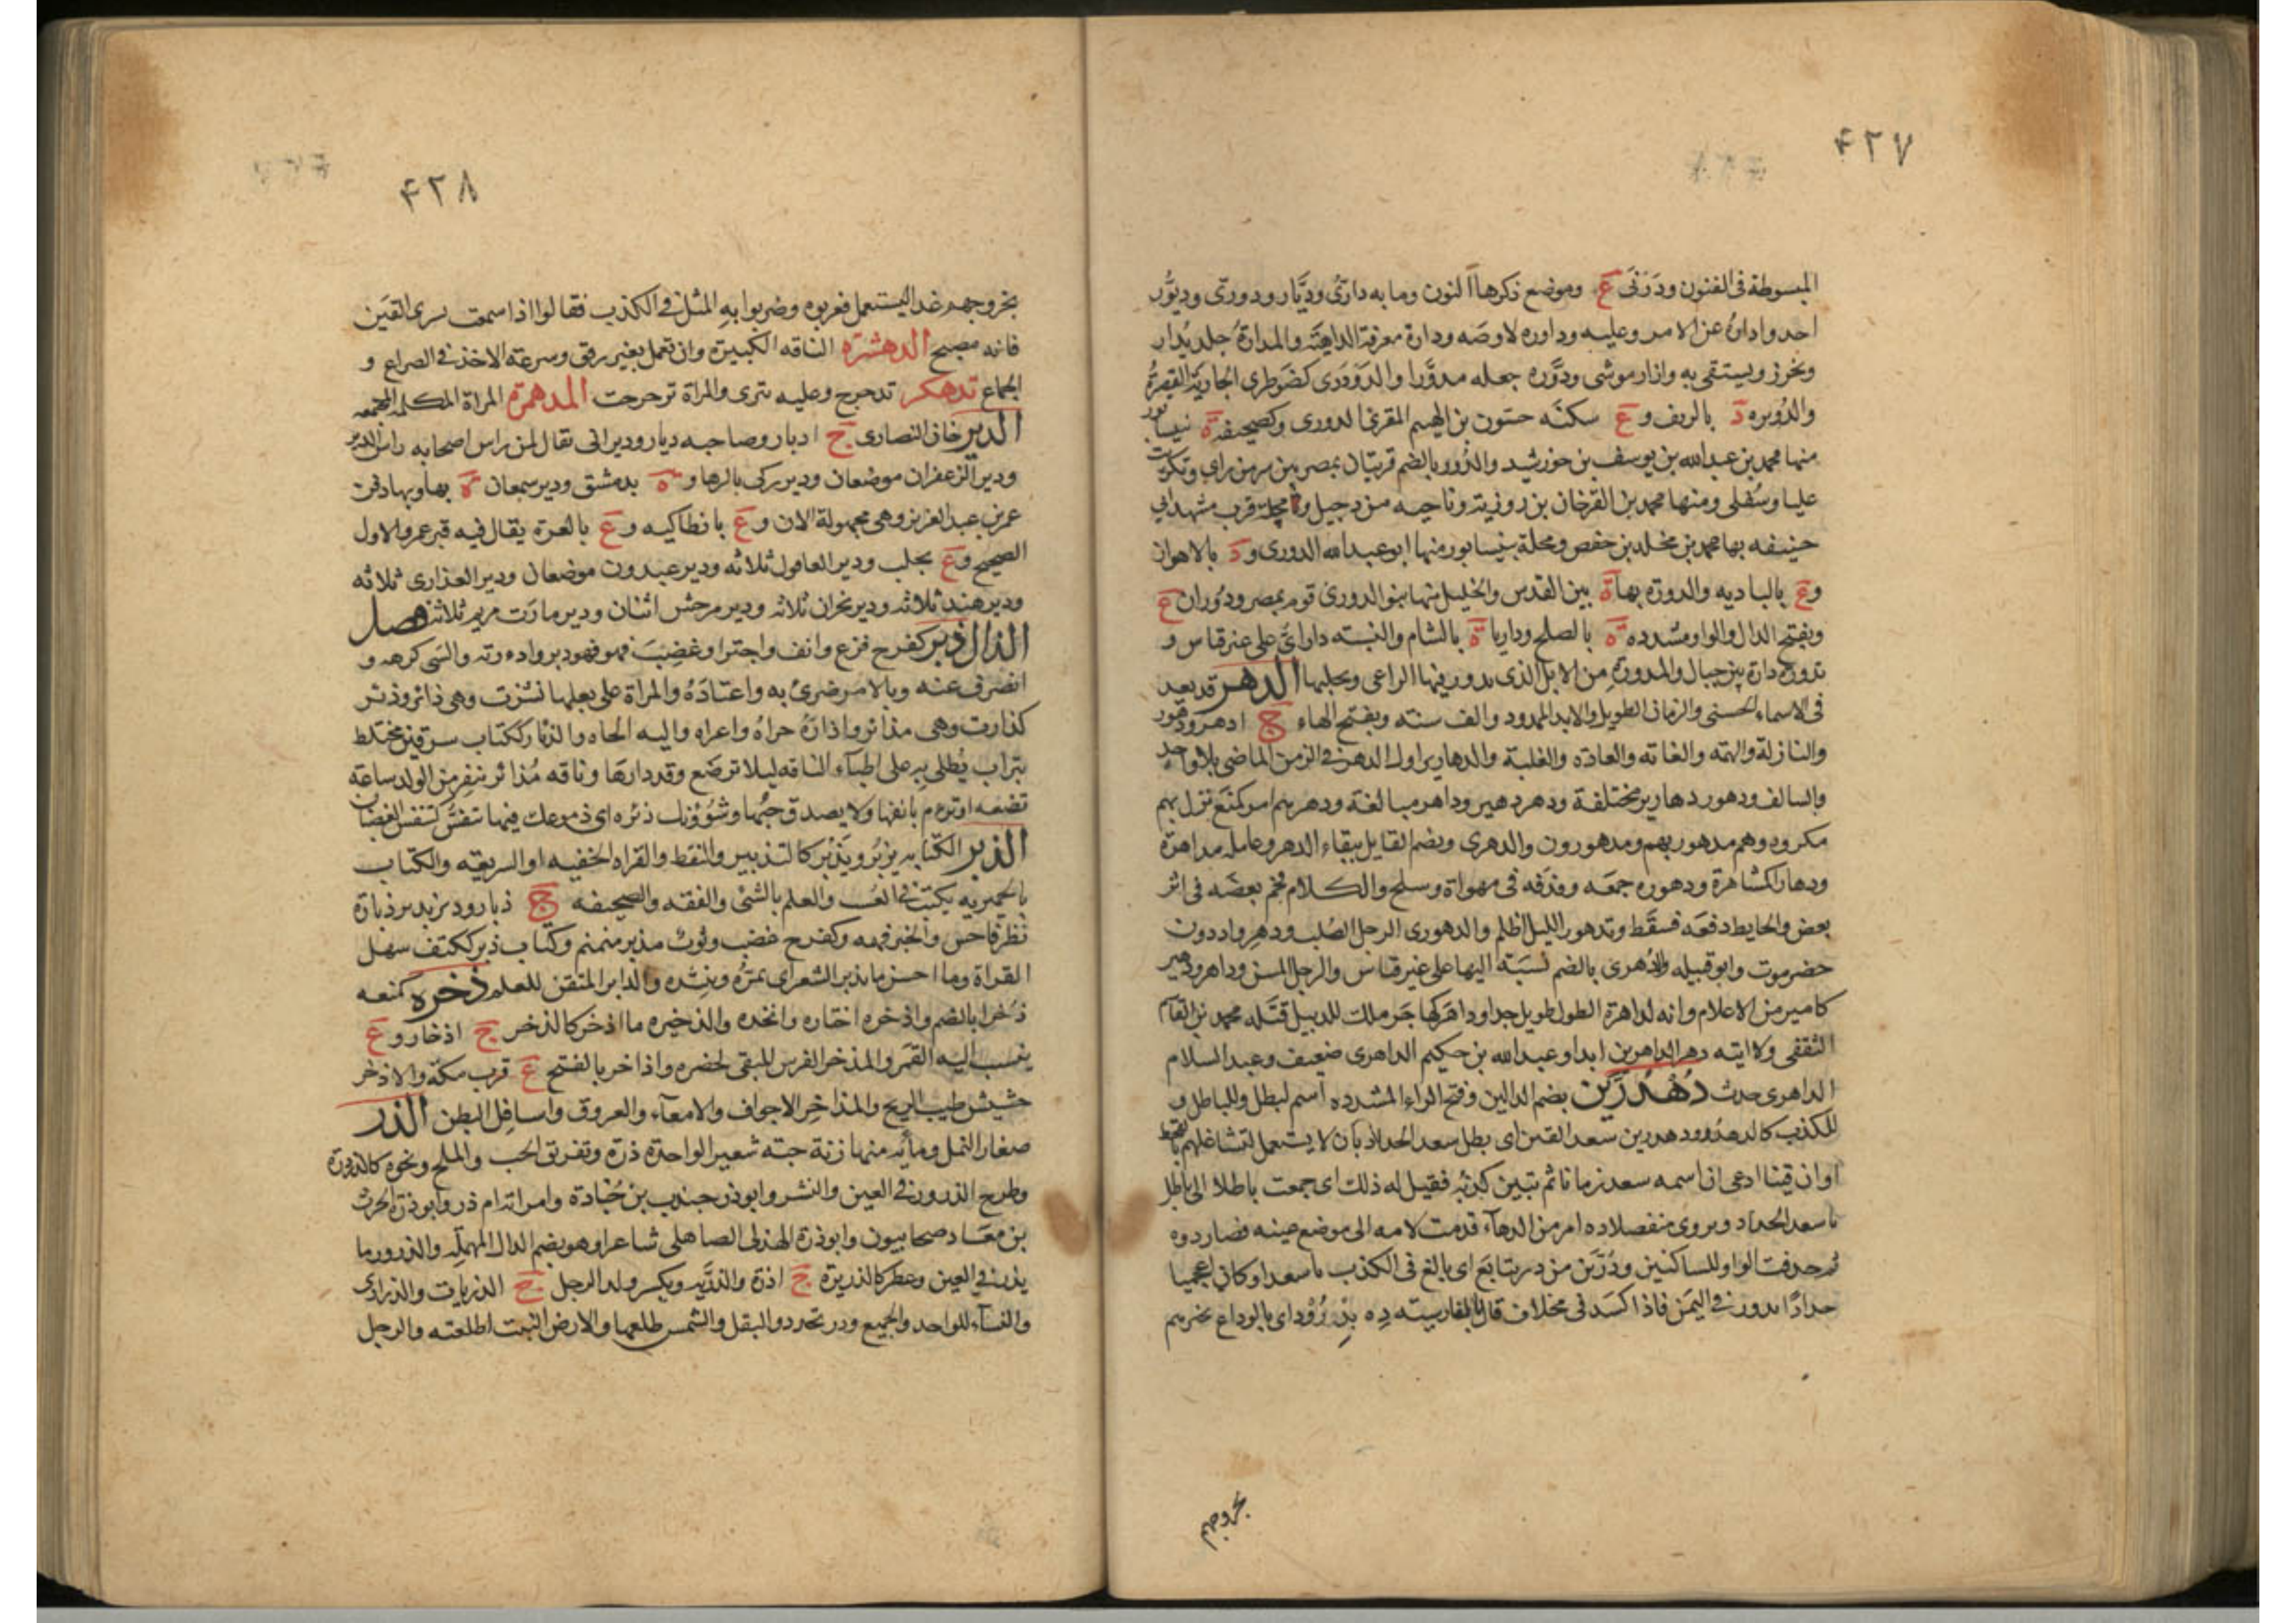 ۴۲۷
المبسوطة فى الفنون ودَرَنَى ع وموضع ذكرها النون وما به دارىّ وديّار ودورى وديّور
احد واداره عن الامر وعليه وداوره لاوصه ودارة معرفة الداهية والمدارة جلد يُدار
ويخرز ويستقى به وازار موشى ودوّره جعله مدوّرا والدودرى كضوطرى الجارية القصيرة
والدُوبره د بالريف و ع سكنه حسنون بن الهيم المقرئ الدورى وكصحيفه ة نيسابور
منها محمد بن عبد الله بن يوسف بن خورشيد والدُور بالضم قريتان بمصر بين سر من راى وتكريت
عليا وسُفلى ومنها محمد بن الفرخان بن روزبة وناحيه من دجيل ومحلة قرب مشهد ابى
حنيفه بها محمد بن مخلد بن حفص ومحلة بنيسابور منها ابو عبد الله الدورى و د بالاهواز
و ع بالباديه والدورة بها ة بين القدس والخليل منها بنو الدورى قوم بمصر ودُوران ع
وبفتح الدال والواو مشدده ة بالصلح وداريا ة بالشام والنسبة داراىّ على غير قياس و
تدورة دارة بين جبال والمدورة من الابل الذى يدور فيها الراعى ويحلبها الدهر قد يعد
فى الاسماء الحسنى والزمان الطويل والابد الممدود والف سنه وبفتح الهاء ج ادهر ودهور
والنازلة والهمه والغايه والعاده والغلبة والدهارير اول الدهر فى الزمن الماضى بلا واحد
والسالف ودهور دهارير مختلفة ودهر دهير وداهر مبالغة ودهرهم امر كمنع نزل بهم
مكروه وهم مدهور بهم ومدهورون والدهرى ويضم القايل ببقاء الدهر وعامله مداهرة
ودهارا كمشاهرة ودهوره جمعه وقذفه فى مهواة وسلح والكلام فخم بعضه فى اثر
بعض والحايط دفعه فسقط وتدهور الليل اظلم والدهورى الرجل الصُلب ودهر واد دون
حضرموت وابو قبيله والدُهرى بالضم نسبة اليها على غير قياس والرجل المسن وداهر ودهير
كامير من الاعلام وانه لداهرة الطول طويل جدا وداهر كهاجر ملك للديبل قتله محمد بن القاسم
الثقفى ولا اتيه دهر الداهرين ابدا وعبد الله بن حكيم الداهرى ضعيف وعبد السلام
الداهرى حدث دُهْدُرَّين بضم الدالين وفتح الراء المشدده اسم لبطل وللباطل و
للكذب كالدهدر ودهدرين سعد القين اى بطل سعد الحداد بان لا يستعمل لتشاغلهم بالقحط
او ان قينا ادعى ان اسمه سعد زمانا ثم تبين كذبه فقيل له ذلك اى جمعت باطلا الى باطل
يا سعد الحداد ويروى منفصلا ده امر من الدهآء قدمت لامه الى موضع عينه فصار دوه
ثم حذفت الواو للساكنين ودُرّين من در تتابع اى بالغ فى الكذب يا سعد او كان اعجميا
حدادًا يدور فى اليمن فاذا كسد فى مخلاف قال بالفارسيته ده بدرود اى بالوداع يخبرهم
بخروجهم
۴۲۸
بخروجهم غدا ليستعمل فعربوه وضربوا به المثل فى الكذب فقالوا اذا سمعت بسرى القين
فانه مصبح الدهشرة الناقه الكبيرة وان تعمل بغير رفق وسرعه الاخذ فى الصراع و
الجماع تدهكر تدحرج وعليه تترى والمراة ترجرجت المدهمرة المراة المكتلة المجتمعه
الدير خان النصارى ج اديار وصاحبه ديار وديرانى يقال لمن راس اصحابه راس الدير
ودير الزعفران موضعان ودير زكى بالرها و ة بدمشق ودير سمعان ة بها وبها دفن
عمر بن عبد العزيز وهى مجهولة الان و ع بانطاكيه و ع بالمعرة يقال فيه قبر عمر والاول
الصحيح و ع بحلب ودير العاقول ثلاثه ودير عبدون موضعان ودير العذارى ثلاثه
ودير هند ثلاثه ودير نجران ثلاثه ودير مرجس اثنان ودير مارَت مريم ثلاثه فصل
الذال ذئر كفرح فزع وانف واجترا وغضب فهو ذئر وذائر والشى كرهه و
انصرف عنه وبالامر ضرئ به واعتاده والمراة على بعلها نشزت وهى ذائر وذئر
كذارت وهى مذائر واذاره جراه واغراه واليه الجاه والذئار ككتاب سرقين مختلط
بتراب يُطلى به على اطبآء الناقه ليلا ترضع وقد ذارها وناقه مُذائر تنفر من الولد ساعة
تضعه او ترام بانفها ولا يصدق حبها وشؤونك ذئره اى دموعك فيها تنفش كتنفس الغضبان
الذبر الكتابه يزبُر ويذبر كالتذبير والنقط والقراه الخفيه او السريعه والكتاب
بالحميريه يكتب فى العُسب والعلم بالشئ والفقه والصحيفه ج ذبار وذبر يذبر ذبارة
نظر فاحسن والخبر فهمه وكفرح غضب وثوب مذبر منمنم وكتاب ذبر ككتف سهل
القراة وما احسن ما يذبر الشعر اى يمرّه وينشده والذابر المتقن للعلم ذخره كمنعه
ذُخرا بالضم واذخره اختاره واتخذه والذخيره ما اذخر كالذخر ج اذخار و ع
ينسب اليه التمر والمذخر الفرس المبقى لحضره واذاخر بالفتح ع قرب مكه والاذخر
حشيش طيب الريح والمذاخر الاجواف والامعآء والعروق واسافل البطن الذر
صغار النمل ومأية منها زنة حبة شعير الواحدة ذرة وتفريق الحب والملح ونحوه كالذرذرة
وطرح الذرور فى العين والنشر وابو ذر جندب بن جُنادة وامراته ام ذر وابو ذرة الحرث
بن معاذ صحابيون وابو ذرة الهذلى الصاهلى شاعر او هو بضم الدال المهملة والذرور ما
يذر فى العين وعطر كالذريرة ج اذرة والذرّية ويكسر ولد الرجل ج الذريات والذرارى
والنسآء للواحد والجميع وذر تخدد والبقل والشمس طلعها والارض النبت اطلعته والرجل